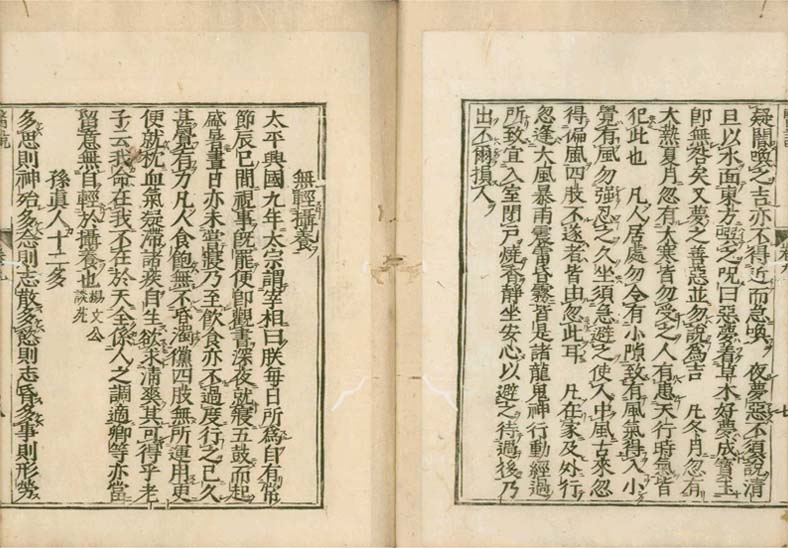 疑闇喚之吉亦不得近而急喚　夜夢惡不須說清
旦以水面東方噀之咒曰惡夢着草木好夢成寶玉
卽無咎矣又夢之善惡並勿說爲吉　凡冬月忽有
大熱夏月忽有大寒皆勿受之人有患天行時氣皆
犯此也　凡人居處勿令有小隙致有風氣得入小
覺有風勿強忍之久坐須急避之使人中風古來忽
得偏風四肢不遂者皆由忽此耳　凡在家及外行
忽逢大風暴雨震雷昏霧皆是諸龍鬼神行動經過
所致宜入室閉戶燒香靜坐安心以避之待過後乃
出不爾損人
無輕攝養
太平興國九年太宗謂宰相曰朕每日所爲卽有常
節辰巳間視事旣罷便卽觀書深夜就寢五鼓而起
盛暑晝日亦未嘗寢乃至飲食亦不過度行之已久
甚覺有力凡人食飽無不昏濁儻四肢無所運用更
便就枕血氣凝滯諸疾自生欲求清爽其可得乎老
子云我命在我不在於天全係人之調適卿等亦當
留意無自輕於攝養也楊文公
談苑
孫眞人十二多
多思則神殆多念則志散多慾則志昏多事則形勞
醫說
卷九
七